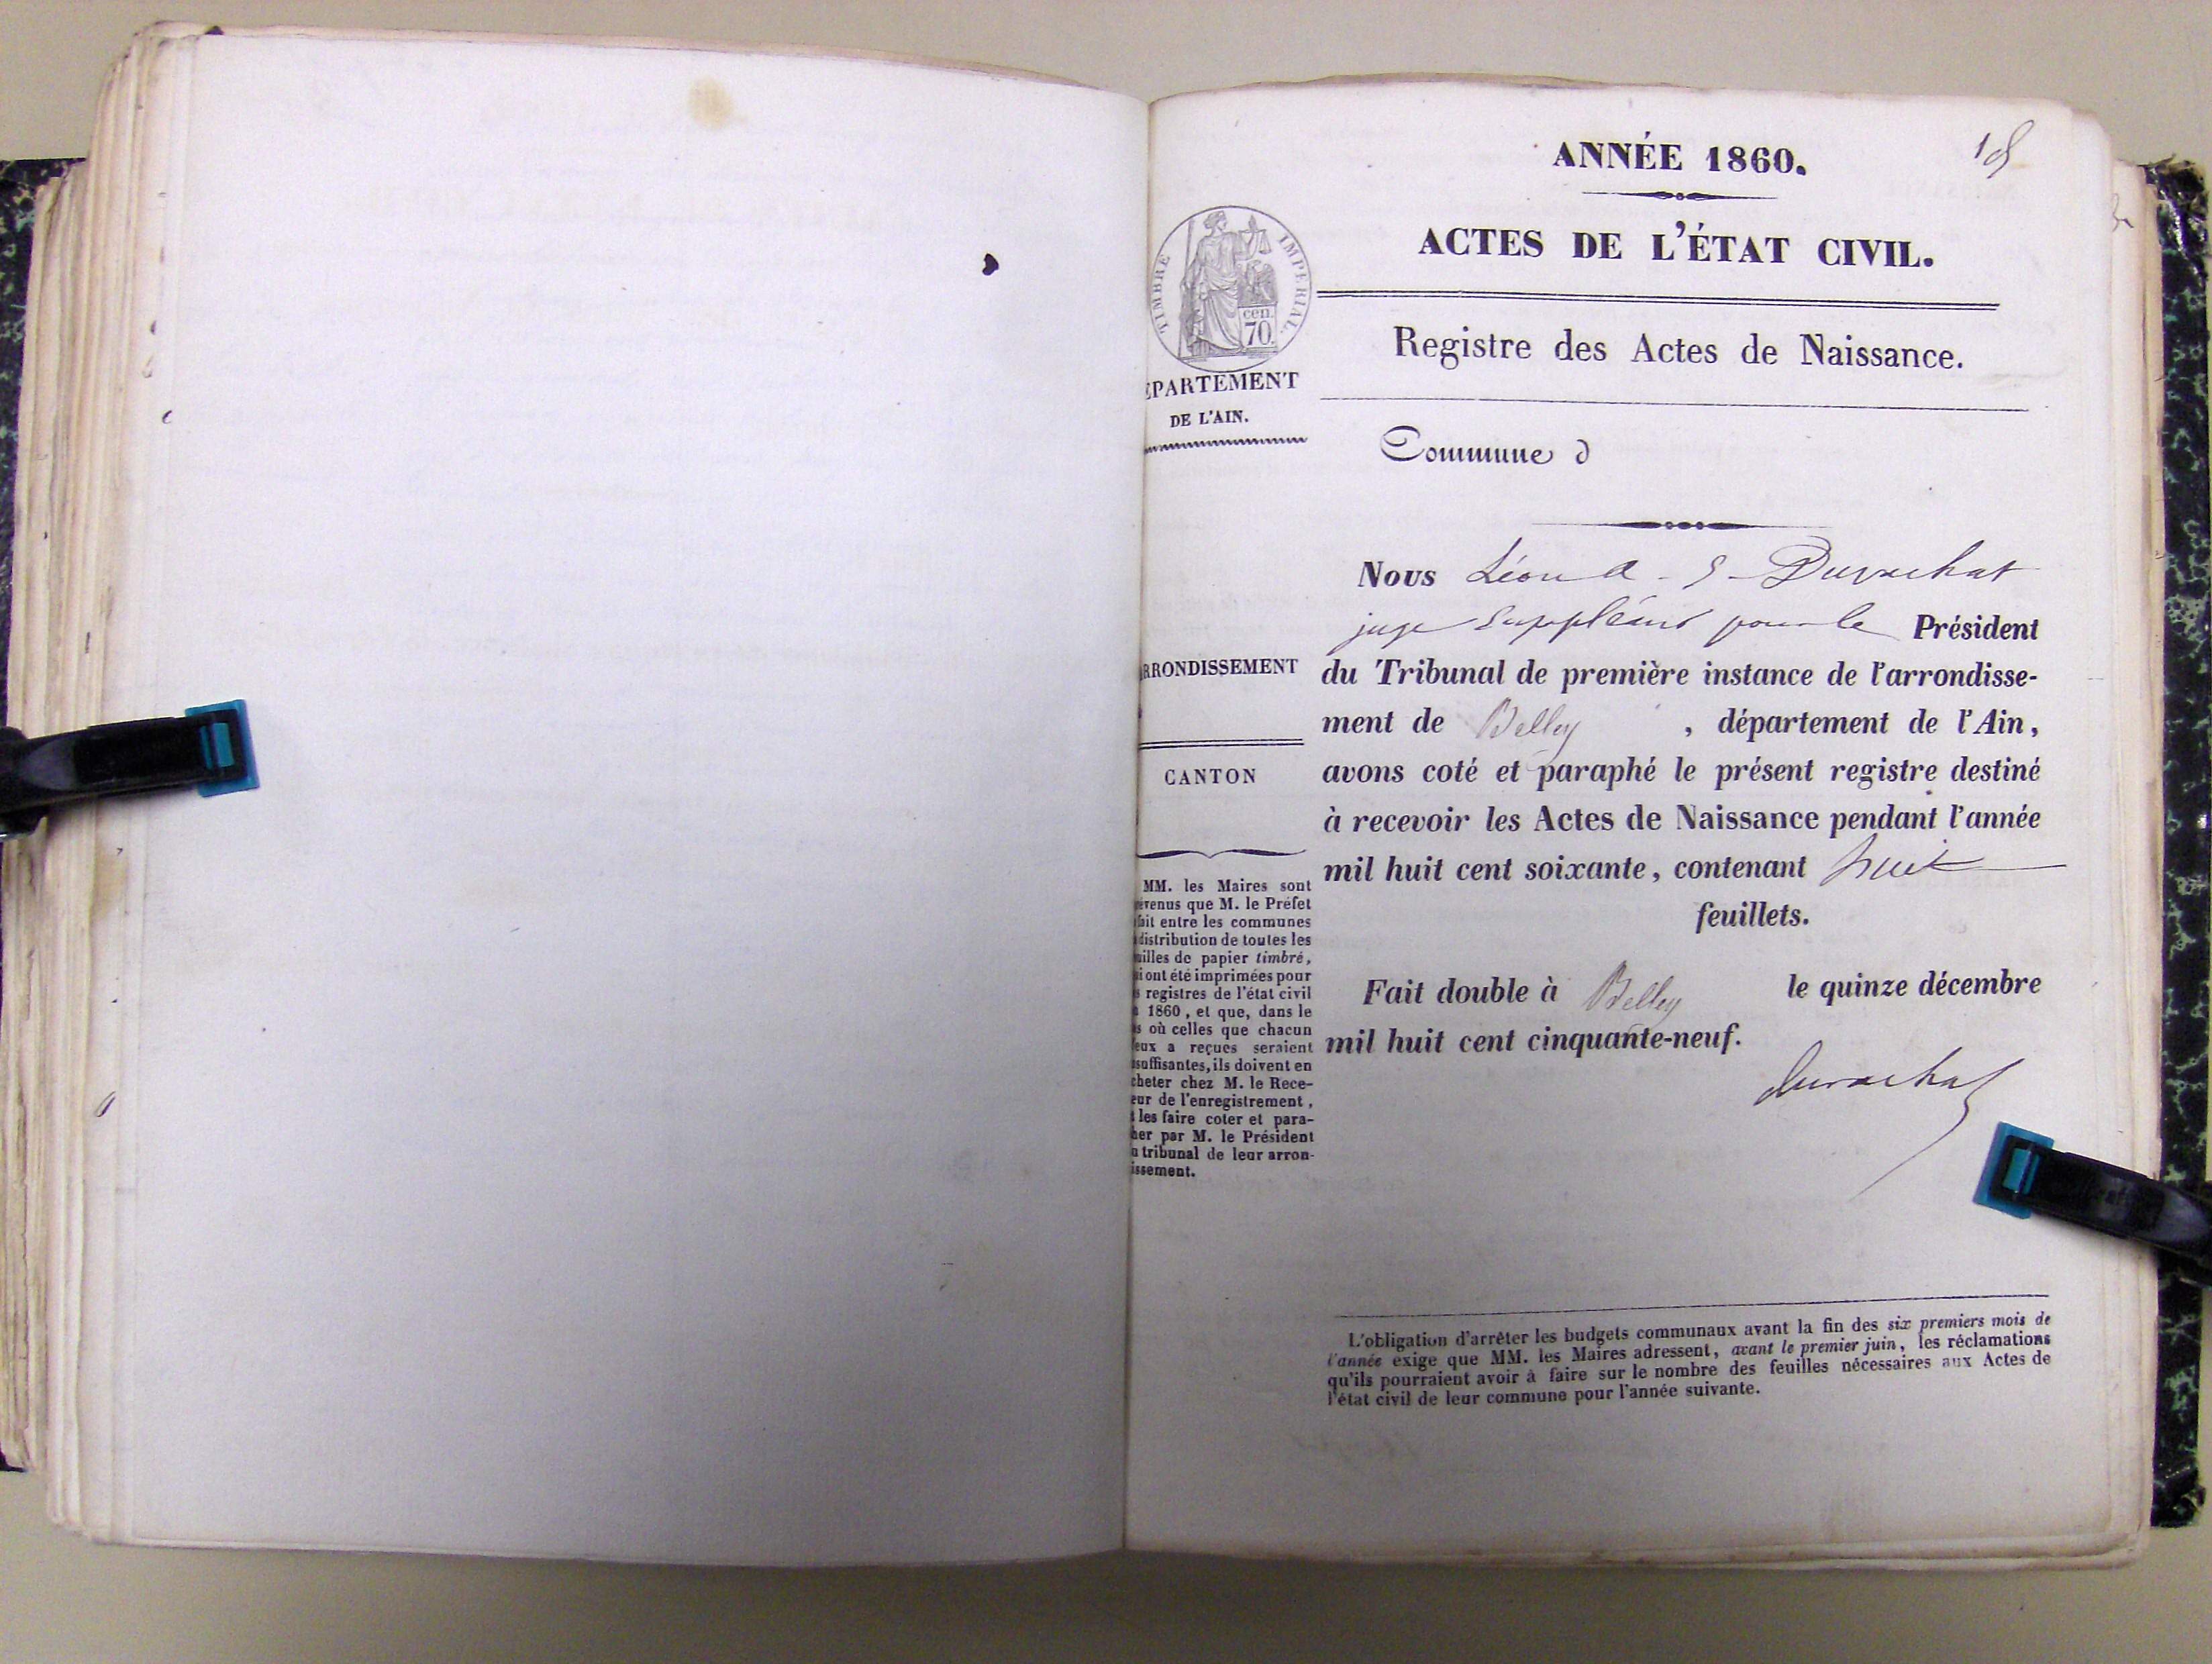 ANNÉE 1860.
1
ACTES DE L'ÉTAT CIVIL.
TIMBRE IMPERIAL.
cen. 70.
Registre des Actes de Naissance.
ÉPARTEMENT
DE L'AIN.
Commune d
Nous Léon Duvachat
juge Suppléant pour le Président
du Tribunal de première instance de l'arrondisse-
ment de Belley , département de l'Ain,
avons coté et paraphé le présent registre destiné
à recevoir les Actes de Naissance pendant l'année
mil huit cent soixante, contenant huit
feuillets.
Fait double à Belley le quinze décembre
mil huit cent cinquante-neuf.
Duvachat
RRONDISSEMENT
CANTON
MM. les Maires sont
évenus que M. le Préfet
fait entre les communes
distribution de toutes les
uilles de papier timbré,
i ont été imprimées pour
s registres de l'état civil
1860, et que, dans le
s où celles que chacun
eux a reçues seraient
suffisantes, ils doivent en
cheter chez M. le Rece-
eur de l'enregistrement,
les faire coter et para-
her par M. le Président
u tribunal de leur arron-
issement.
L'obligation d'arrêter les budgets communaux avant la fin des six premiers mois de
l'année exige que MM. les Maires adressent, avant le premier juin, les réclamations
qu'ils pourraient avoir à faire sur le nombre des feuilles nécessaires aux Actes de
l'état civil de leur commune pour l'année suivante.